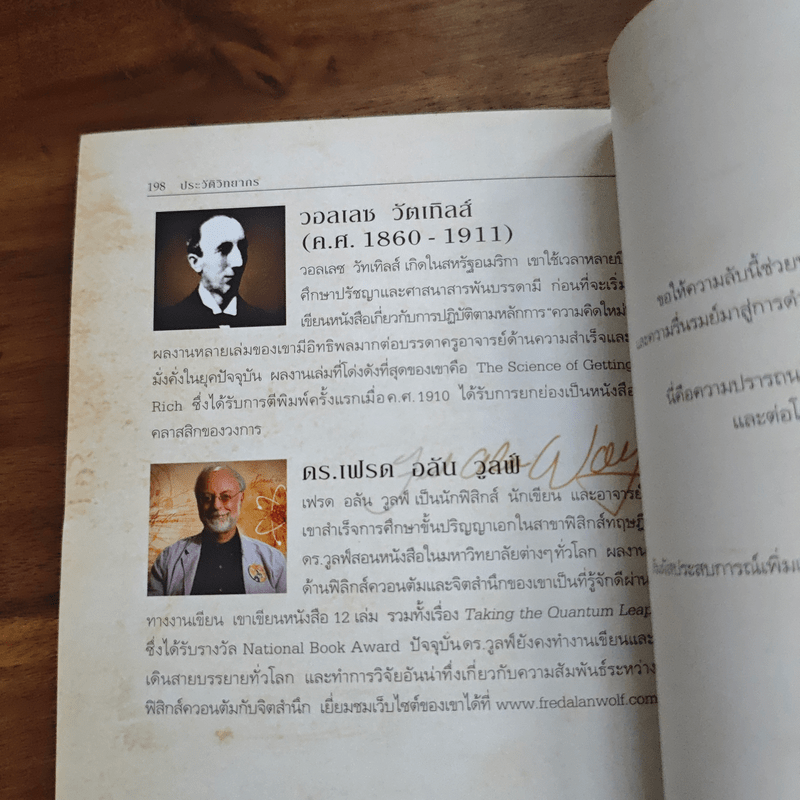 198 ประวัติวิทยากร
วอลเลซ วัตเทิลส์
(ค.ศ. 1860 - 1911)
วอลเลซ วัทเทิลส์ เกิดในสหรัฐอเมริกา เขาใช้เวลาหลายปี
ศึกษาปรัชญาและศาสนาสารพันบรรดามี ก่อนที่จะเริ่ม
เขียนหนังสือเกี่ยวกับการปฏิบัติตามหลักการ "ความคิดใหม่"
ผลงานหลายเล่มของเขามีอิทธิพลมากต่อบรรดาครูอาจารย์ด้านความสำเร็จและ
มั่งคั่งในยุคปัจจุบัน ผลงานเล่มที่โด่งดังที่สุดของเขาคือ The Science of Getting
Rich ซึ่งได้รับการตีพิมพ์ครั้งแรกเมื่อ ค.ศ. 1910 ได้รับการยกย่องเป็นหนังสือ
คลาสสิกของวงการ
ดร.เฟรด อลัน วูลฟ์
เฟรด อลัน วูลฟ์ เป็นนักฟิสิกส์ นักเขียน และอาจารย์
เขาสำเร็จการศึกษาขั้นปริญญาเอกในสาขาฟิสิกส์ทฤษฎี
ดร.วูลฟ์สอนหนังสือในมหาวิทยาลัยต่างๆ ทั่วโลก ผลงาน
ด้านฟิสิกส์ควอนตัมและจิตสำนึกของเขาเป็นที่รู้จักดีผ่าน
ทางงานเขียน เขาเขียนหนังสือ 12 เล่ม รวมทั้งเรื่อง Taking the Quantum Leap
ซึ่งได้รับรางวัล National Book Award ปัจจุบัน ดร.วูลฟ์ยังคงทำงานเขียนและ
เดินสายบรรยายทั่วโลก และทำการวิจัยอันน่าทึ่งเกี่ยวกับความสัมพันธ์ระหว่าง
ฟิสิกส์ควอนตัมกับจิตสำนึก เยี่ยมชมเว็บไซต์ของเขาได้ที่ www.fredalanwolf.com
ขอให้ความลับนี้ช่วย
และความรื่นรมย์มาสู่การ
นี่คือความปรารถน
และต่อโ
ประสบการณ์เพิ่มเ